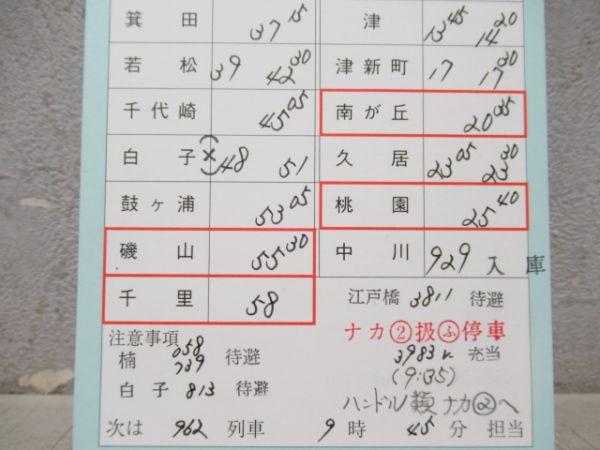 箕田 37 15
若松 39 42 30
千代崎 45 05
白子 (×) 48 51
鼓ヶ浦 53 05
磯山 55 30
千里 58
津 13 45 14 20
津新町 17 17 30
南が丘 20 35
久居 23 05 23 30
桃園 25 40
中川 929 入庫
江戸橋 3811 待避
ナカ②扱㋫停車
3983レ 充当
(9:35)
ハンドル ナカ②へ
注意事項
楠 058 739 待避
白子 813 待避
次は 962 列車 9時 45分 担当